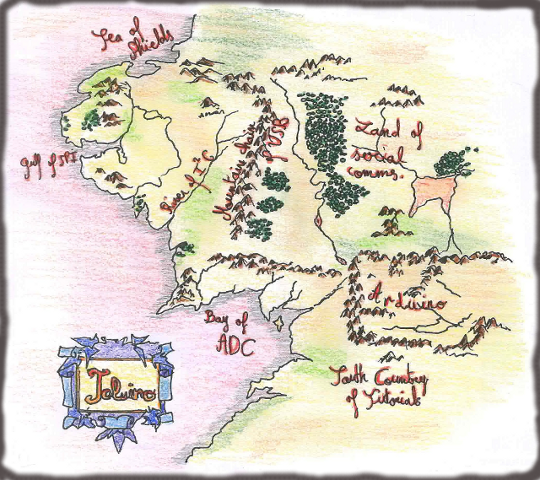 Sea of
Shields
Gulf of SPI
River of I²C
Mountain chain
of USB
Land of
social
comms.
Arduino
Bay of
ADC
South Country
of Tutorials